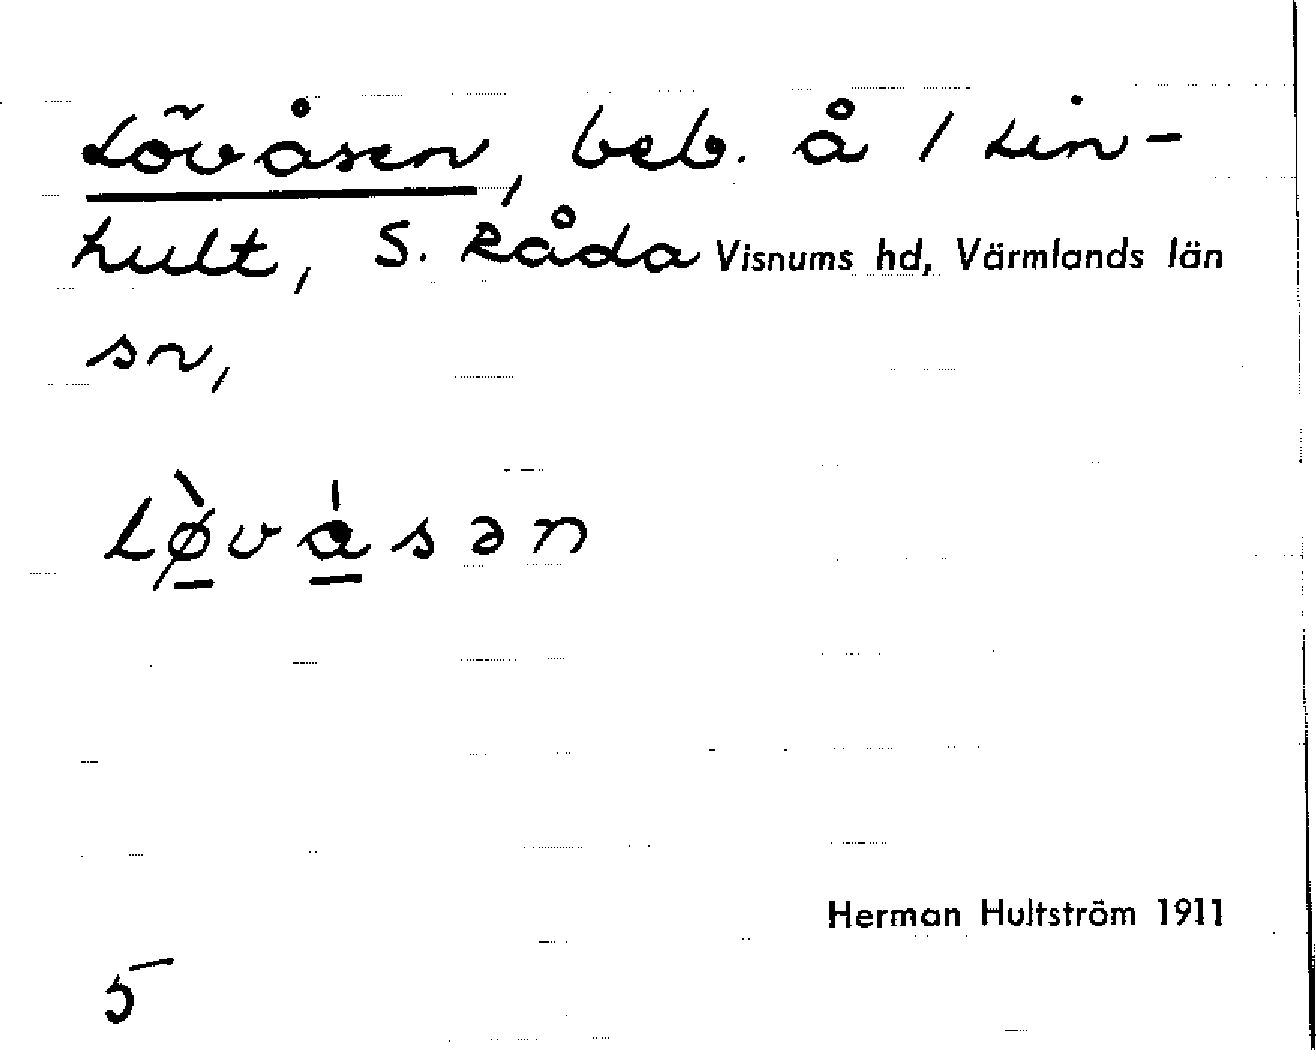 Lövåsen, beb. å 1 Lin-
hult, S. Råda Visnums hd, Värmlands län
sn,
Lø̀våsən
Herman Hultström 1911
5